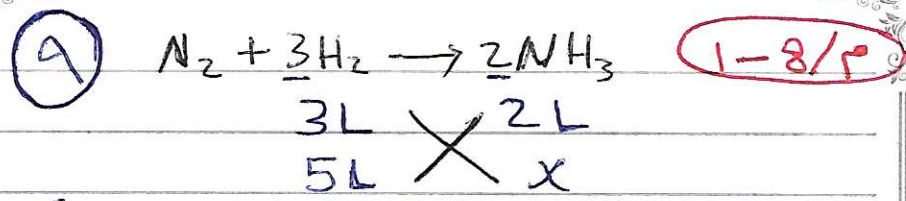 ٩ N₂ + 3H₂ → 2NH₃ 1-8/م
3L 2L
5L x